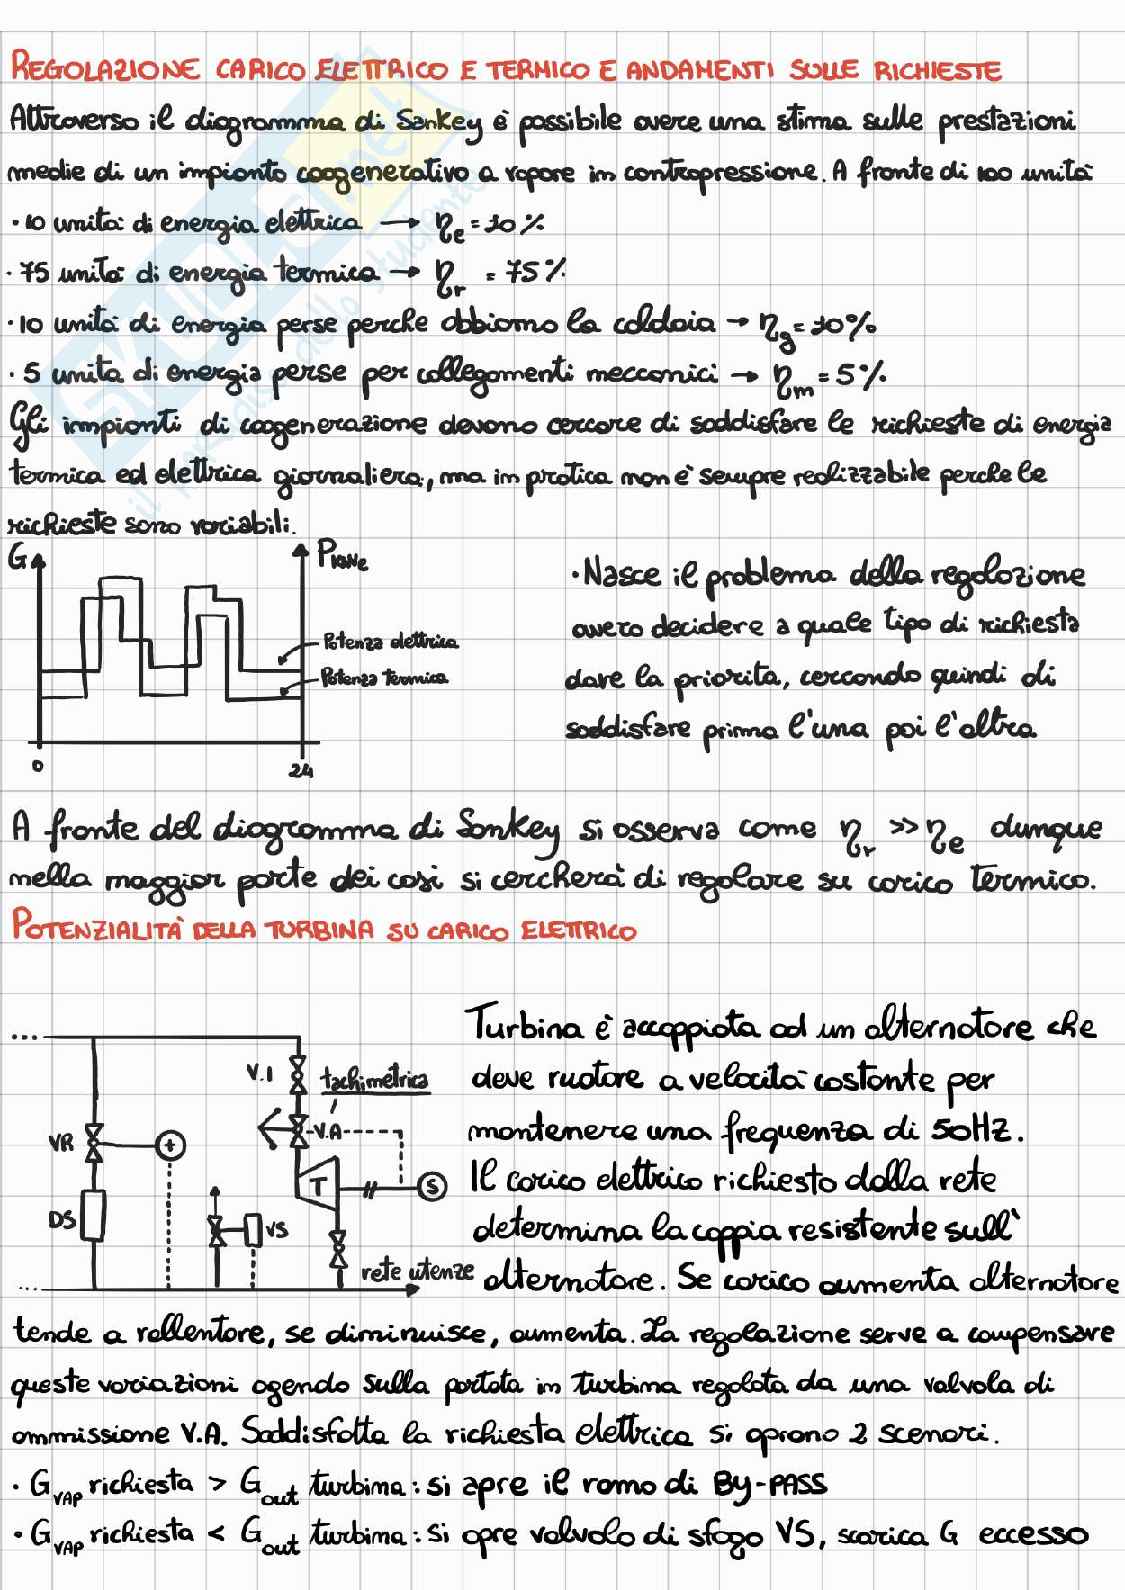 REGOLAZIONE CARICO ELETTRICO E TERMICO E ANDAMENTI SULLE RICHIESTE
Attraverso il diagramma di Sankey è possibile avere una stima sulle prestazioni
medie di un impianto cogenerativo a vapore in contropressione. A fronte di 100 unità
· 10 unità di energia elettrica → η_e = 10%
· 75 unità di energia termica → η_r = 75%
· 10 unità di energia perse perche abbiamo la caldaia → η_g = 10%
· 5 unita di energia perse per collegamenti meccanici → η_m = 5%
Gli impianti di cogenerazione devono cercare di soddisfare le richieste di energia
termica ed elettrica giornaliera, ma in pratica non è sempre realizzabile perche le
richieste sono variabili.
G
Potenza elettrica
Potenza termica
0
24
· Nasce il problema della regolazione
ovvero decidere a quale tipo di richiesta
dare la priorità, cercando quindi di
soddisfare prima l'una poi l'altra
A fronte del diagramma di Sankey si osserva come η_r >> η_e dunque
nella maggior parte dei casi si cercherà di regolare su carico termico.
POTENZIALITÀ DELLA TURBINA SU CARICO ELETTRICO
V.I
tachimetrica
VR
t
V.A
T
S
DS
VS
rete utenze
Turbina è accoppiata ad un alternatore che
deve ruotare a velocità costante per
mantenere una frequenza di 50HZ.
Il carico elettrico richiesto dalla rete
determina la coppia resistente sull'
alternatore. Se carico aumenta alternatore
tende a rallentare, se diminuisce, aumenta. La regolazione serve a compensare
queste variazioni agendo sulla portata in turbina regolata da una valvola di
ammissione V.A. Soddisfatta la richiesta elettrica si aprono 2 scenari.
· G_VAP richiesta > G_out turbina: si apre il ramo di By-PASS
· G_VAP richiesta < G_out turbina: si apre valvola di sfogo VS, scarica G eccesso
SKUOLA.net
il paradiso dello studente